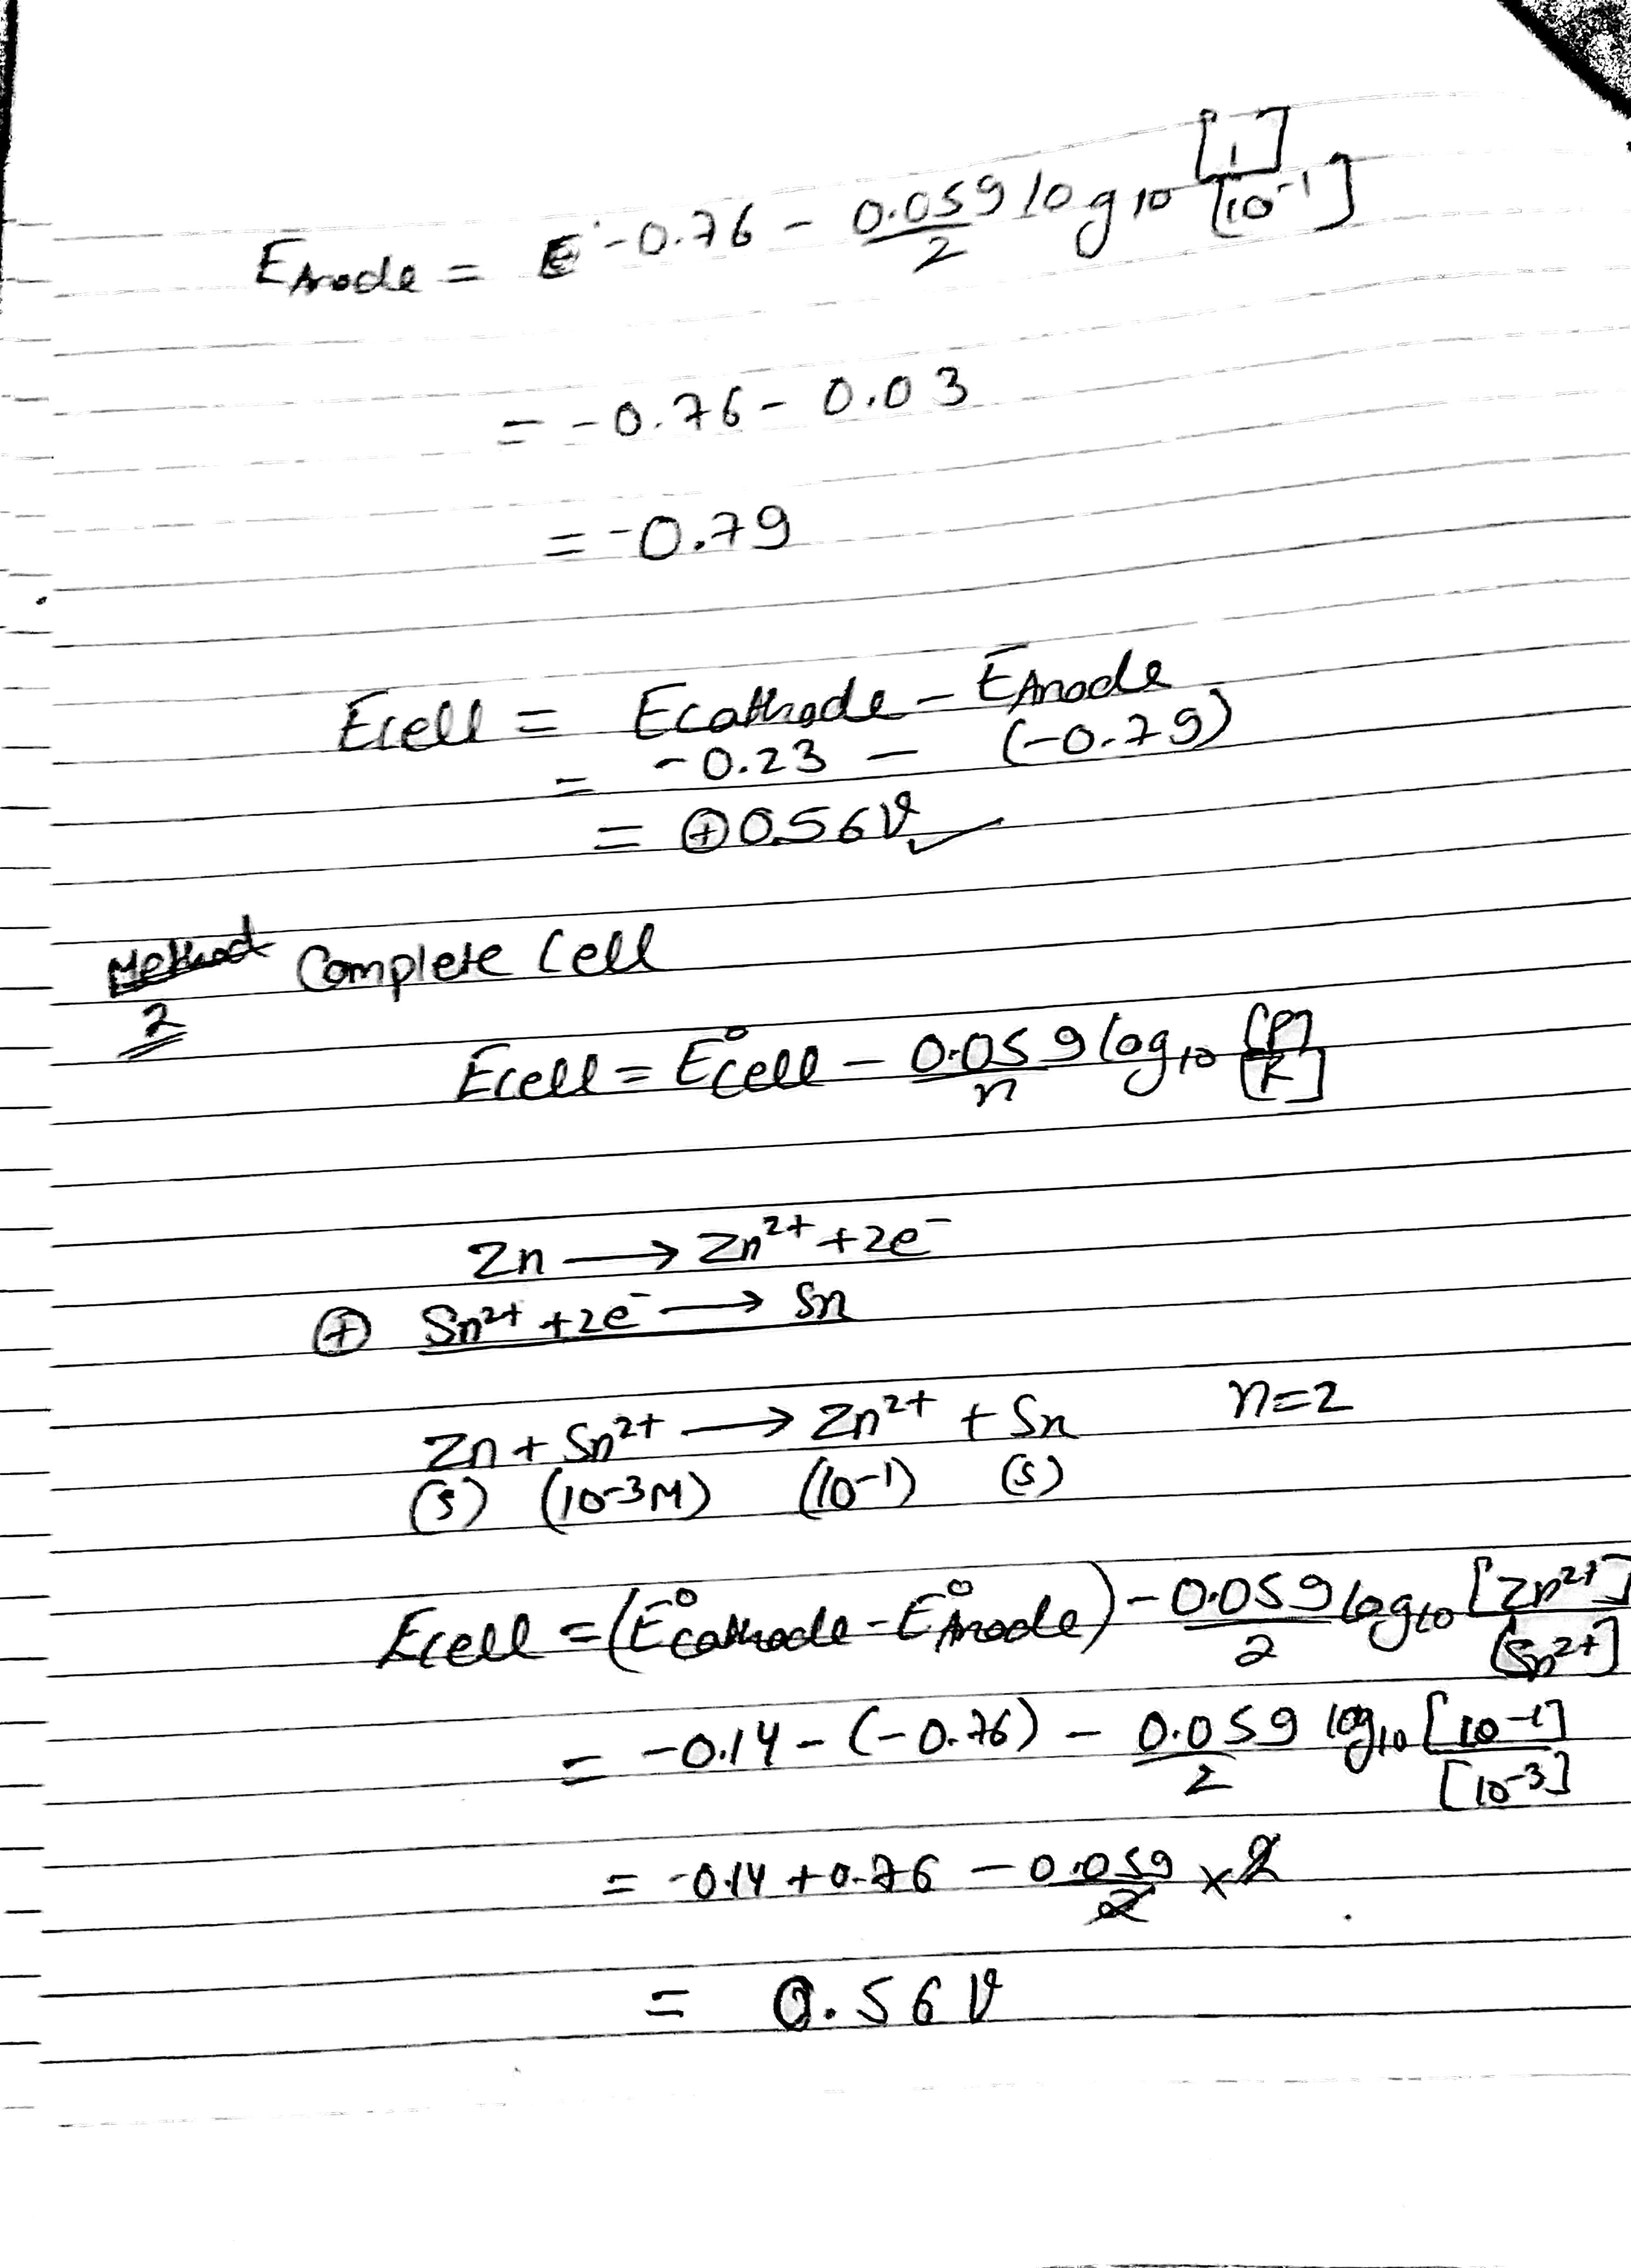 E Anode = E -0.76 - 0.059/2 log10 [1]/[10^-1]
= -0.76 - 0.03
= -0.79
Ecell = Ecathode - EAnode
= -0.23 - (-0.79)
= ⊕0.56V ✓
Method 2 Complete Cell
Ecell = E°cell - 0.059/n log10 [P]/[R]
Zn → Zn²⁺ + 2e⁻
⊕ Sn²⁺ + 2e⁻ → Sn
Zn + Sn²⁺ → Zn²⁺ + Sn n=2
(s) (10^-3M) (10^-1) (s)
Ecell = (E°cathode - E°Anode) - 0.059/2 log10 [Zn²⁺]/[Sn²⁺]
= -0.14 - (-0.76) - 0.059/2 log10 [10^-1]/[10^-3]
= -0.14 + 0.76 - 0.059/2 × 2
= 0.56V